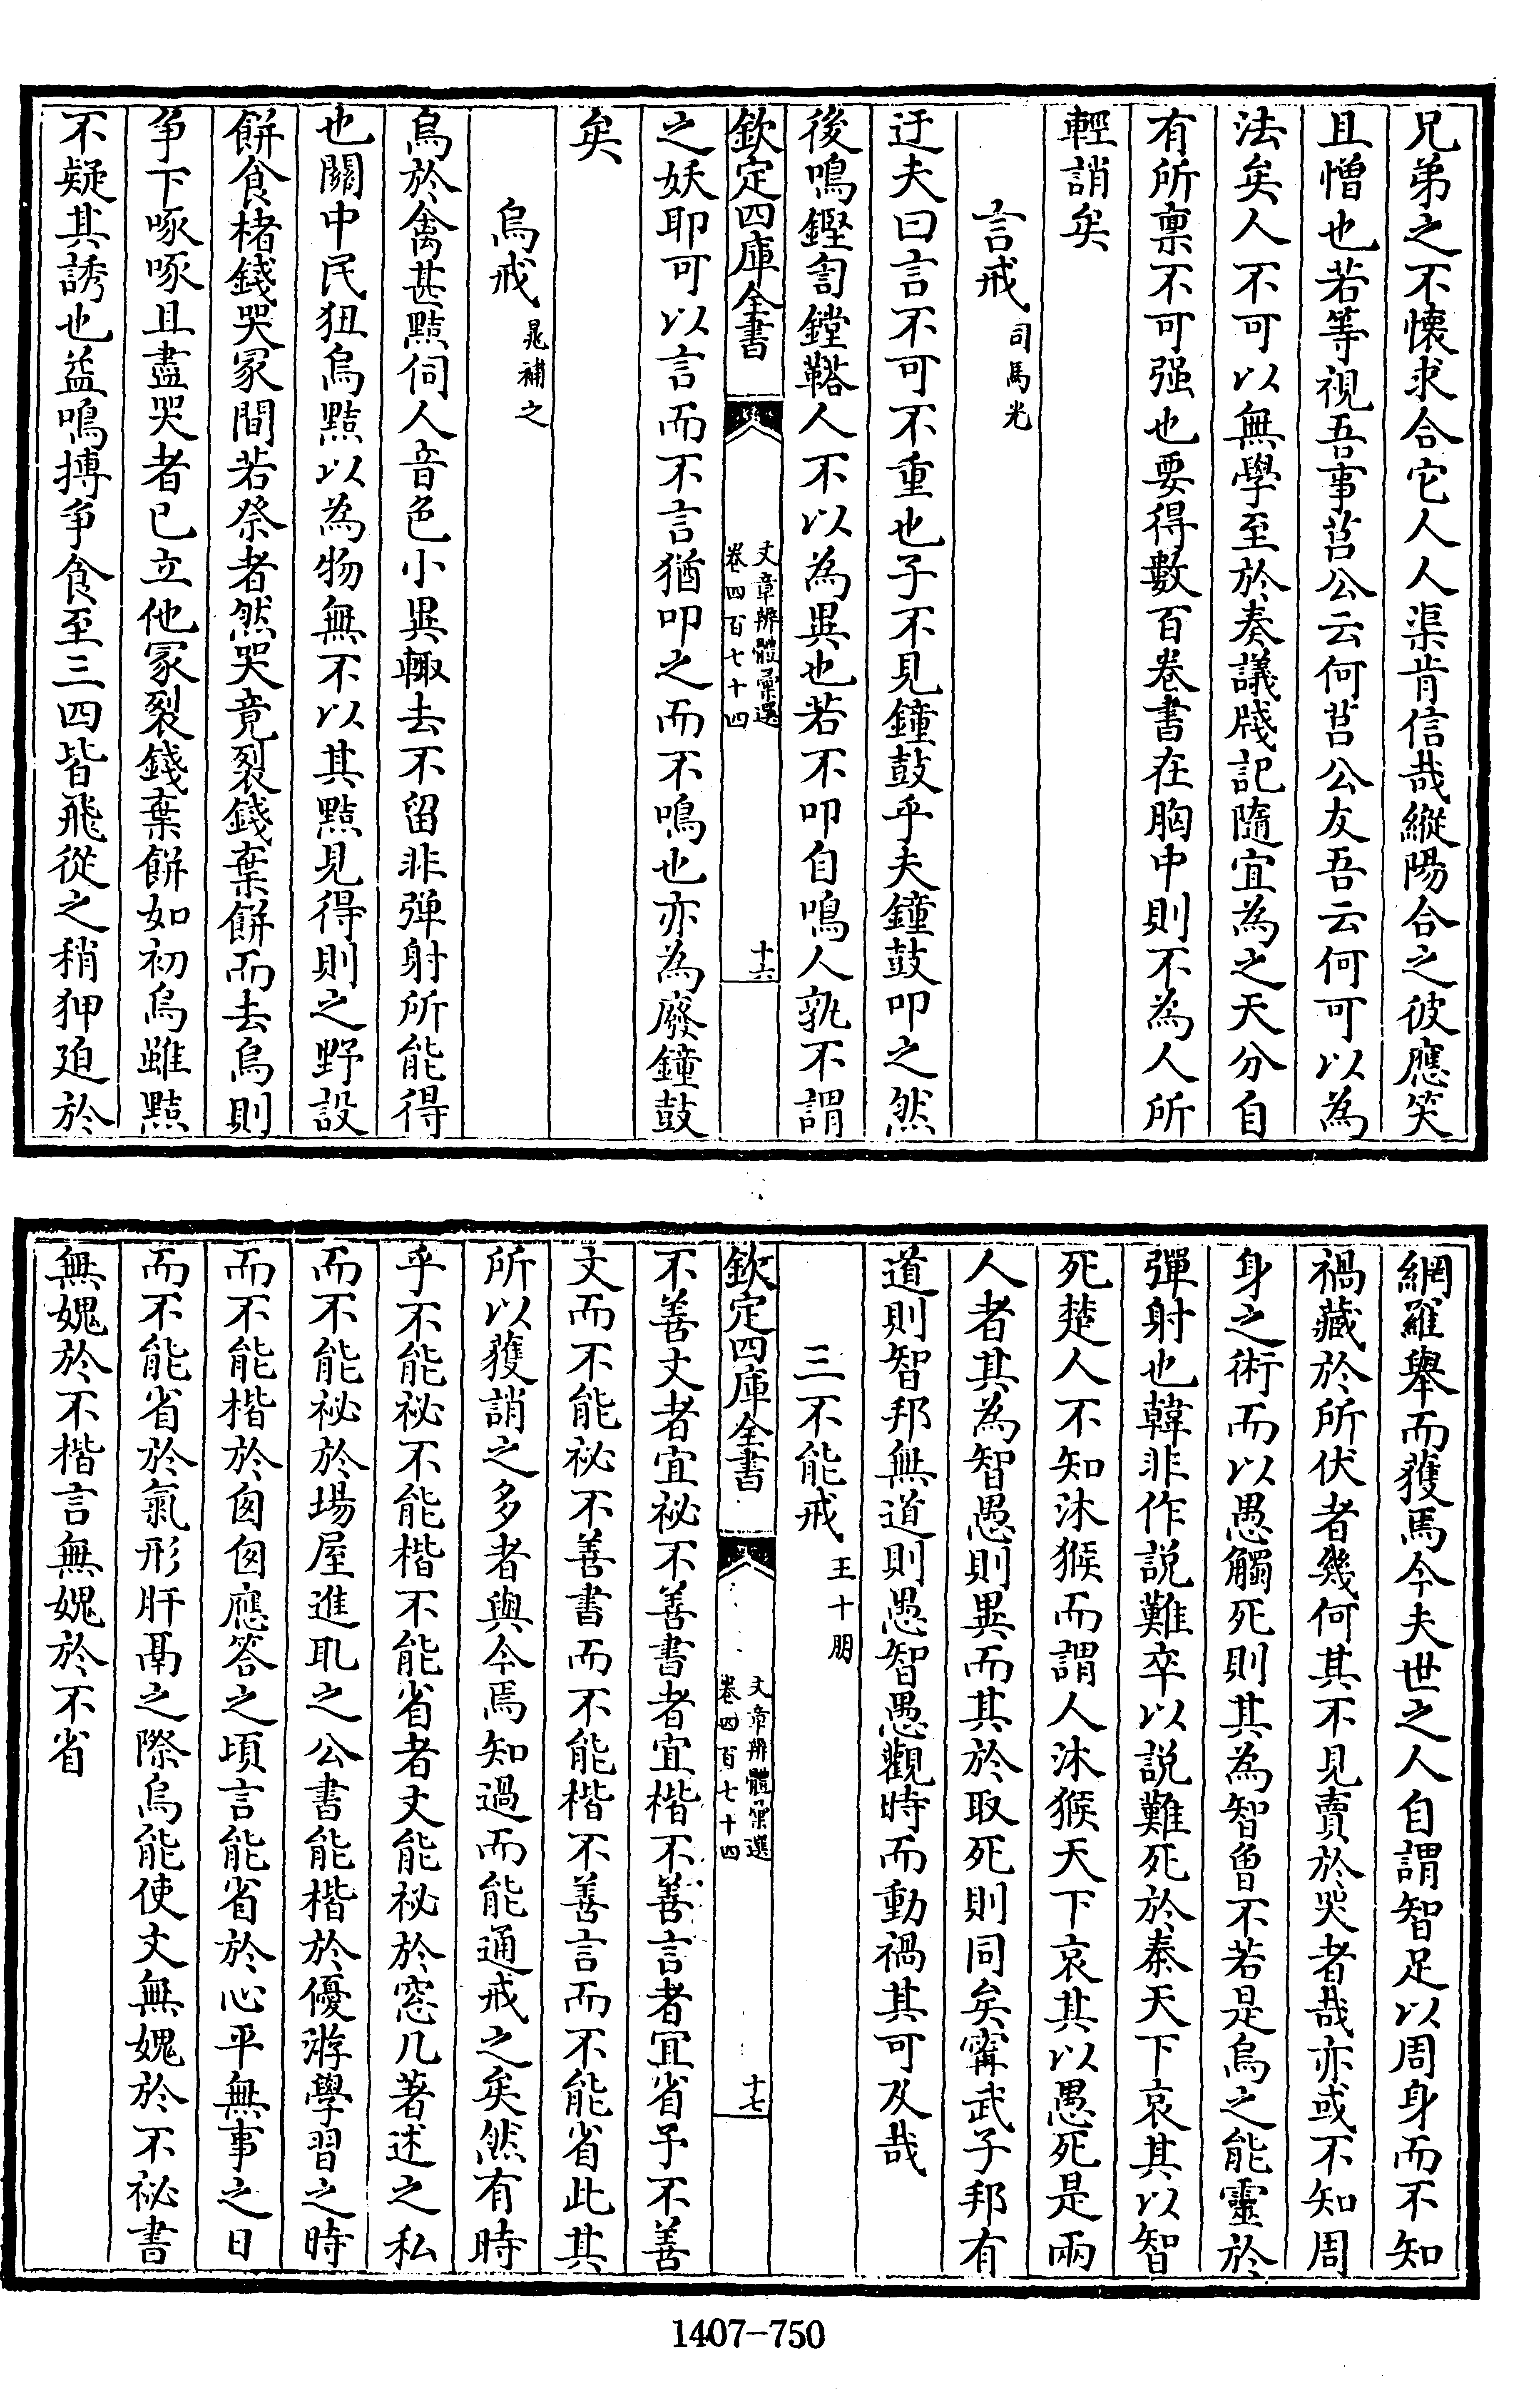 兄弟之不懷求合它人人渠肯信哉縱陽合之彼應笑
且憎也若等視吾事莒公云何莒公友吾云何可以為
法矣人不可以無學至於奏議牋記隨宜為之天分自
有所禀不可强也要得數百卷書在胸中則不為人所
輕誚矣
言戒 司馬光
迂夫曰言不可不重也子不見鐘鼓乎夫鐘鼓叩之然
後鳴鏗訇鏜鞳人不以為異也若不叩自鳴人孰不謂
欽定四庫全書 文章辨體彚選 卷四百七十四 十六
之妖耶可以言而不言猶叩之而不鳴也亦為廢鐘鼓
矣
烏戒 晁補之
烏於禽甚黠伺人音色小異輙去不留非弹射所能得
也關中民狃烏黠以為物無不以其黠見得則之野設
餅食楮錢哭冢間若祭者然哭竟裂錢棄餅而去烏則
争下啄啄且盡哭者已立他冢裂錢棄餅如初烏雖黠
不疑其誘也益鳴搏争食至三四皆飛從之稍狎廹於
網羅舉而獲焉今夫世之人自謂智足以周身而不知
禍藏於所伏者幾何其不見賣於哭者哉亦或不知周
身之術而以愚觸死則其為智曽不若是烏之能靈於
彈射也韓非作説難卒以説難死於秦天下哀其以智
死楚人不知沐猴而謂人沐猴天下哀其以愚死是兩
人者其為智愚則異而其於取死則同矣甯武子邦有
道則智邦無道則愚智愚觀時而動禍其可及哉
三不能戒 王十朋
欽定四庫全書 文章辨體彚選 卷四百七十四 十七
不善文者宜祕不善書者宜楷不善言者宜省予不善
文而不能祕不善書而不能楷不善言而不能省此其
所以獲誚之多者與今焉知過而能通戒之矣然有時
乎不能祕不能楷不能省者文能祕於窓几著述之私
而不能祕於場屋進取之公書能楷於優游學習之時
而不能楷於匆匆應答之頃言能省於心平無事之日
而不能省於氣形肝鬲之際烏能使文無媿於不祕書
無媿於不楷言無媿於不省
1407-750